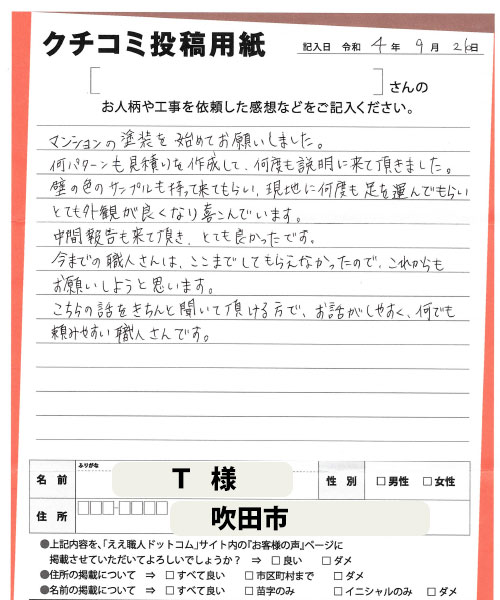 クチコミ投稿用紙
記入日 令和 4年 9月 26日
[ ]さんの
お人柄や工事を依頼した感想などをご記入ください。
マンションの塗装を始めてお願いしました。
何パターンも見積りを作成して、何度も説明に来て頂きました。
壁の色のサンプルも持って来てもらい、現地に何度も足を運んでもらい
とても外観が良くなり喜こんでいます。
中間報告も来て頂き、とても良かったです。
今までの職人さんは、ここまでしてもらえなかったので、これからも
お願いしようと思います。
こちらの話をきちんと聞いて頂ける方で、お話がしやすく、何でも
頼みやすい職人さんです。
名前 ふりがな T 様 性別 □男性 □女性
住所 □□□-□□□□ 吹田市
●上記内容を、「ええ職人ドットコム」サイト内の『お客様の声』ページに
掲載させていただいてよろしいでしょうか? ⇒ □良い □ダメ
●住所の掲載について ⇒ □すべて良い □市区町村まで □ダメ
●名前の掲載について ⇒ □すべて良い □苗字のみ □イニシャルのみ □ダメ